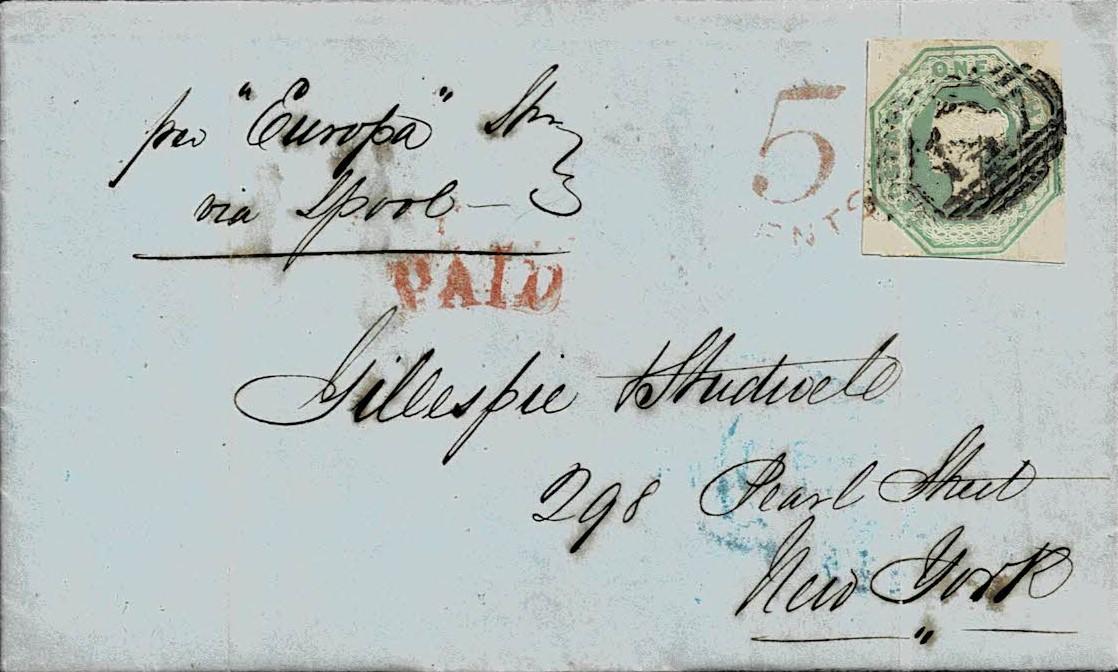 per "Europa" Stmr
via Lpool —
5
CENTS
ONE
PAID
Gillespie & Studwell
298 Pearl Street
New York